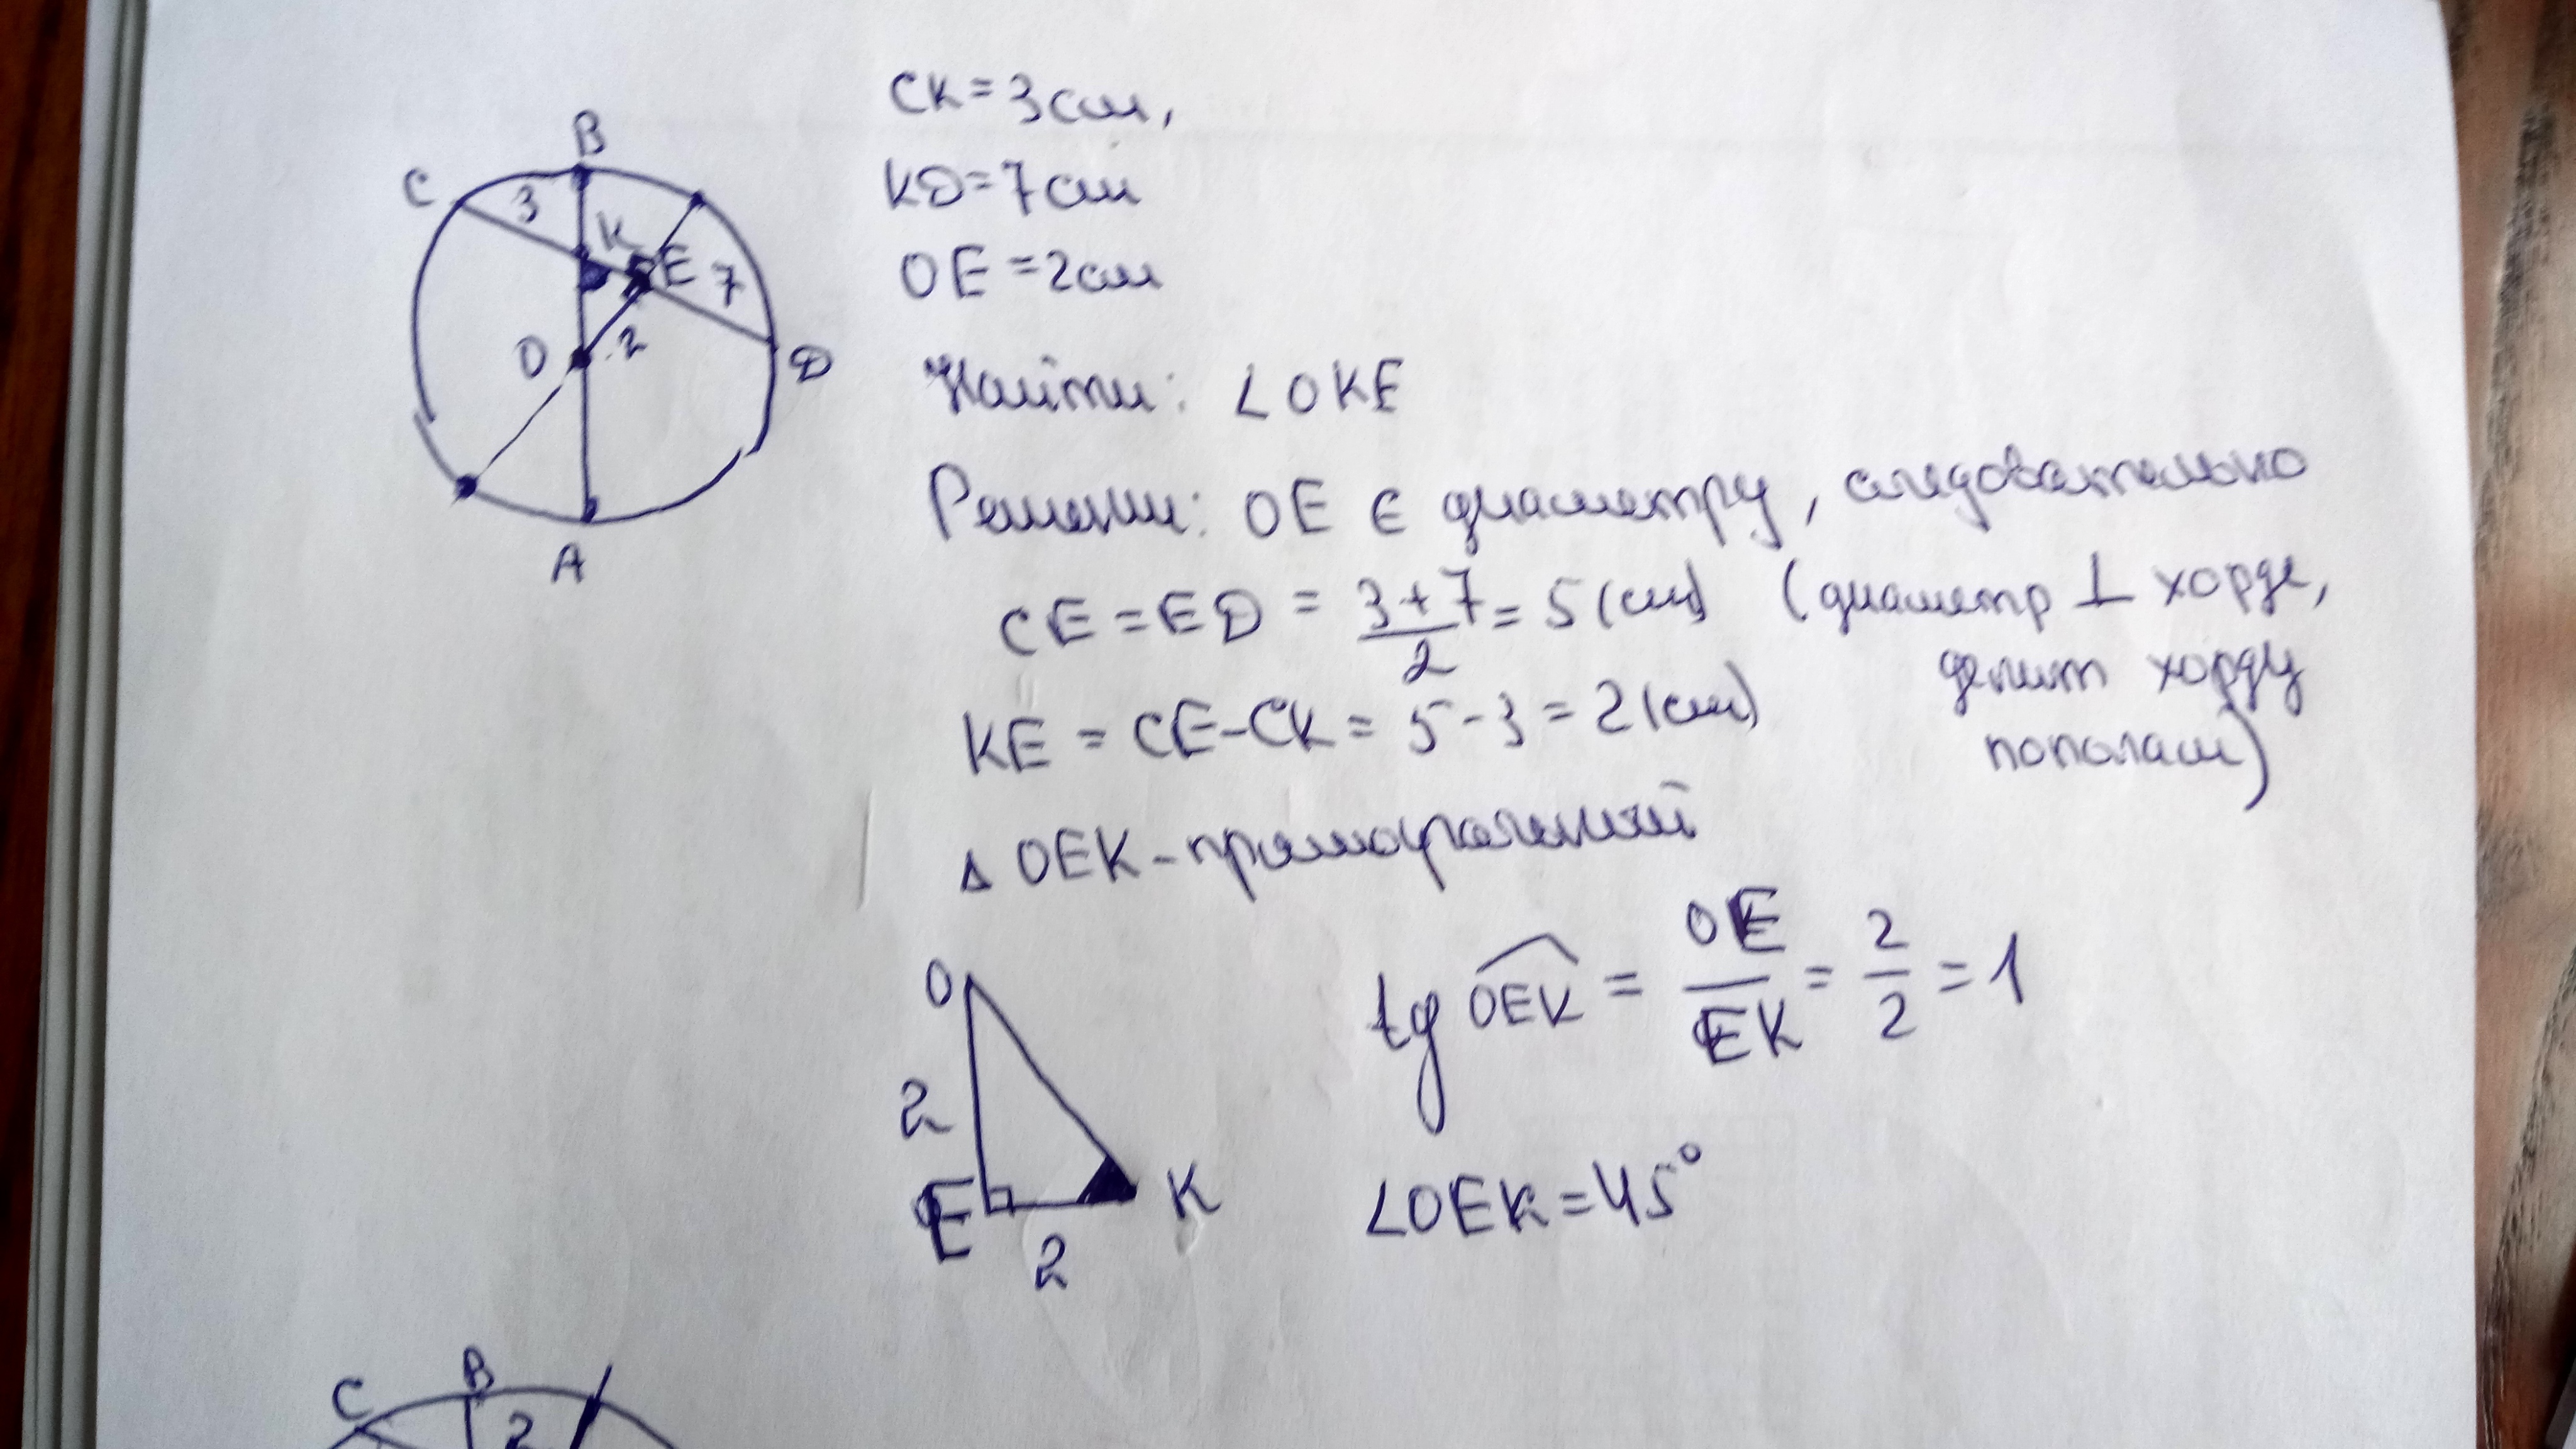 B
C
3
K
E
7
O
2
D
A
CK = 3см,
KD = 7см
OE = 2см
Найти: ∠OKE
Решени: OE ∈ диаметру, следовательно
CE = ED = \frac{3+7}{2} = 5 (см) (диаметр ⊥ хорде,
делит хорду
пополам)
KE = CE - CK = 5 - 3 = 2 (см)
Δ OEK - прямоугольный
O
2
E
2
K
tg \widehat{OEK} = \frac{OE}{EK} = \frac{2}{2} = 1
∠OEK = 45°
C
B
2